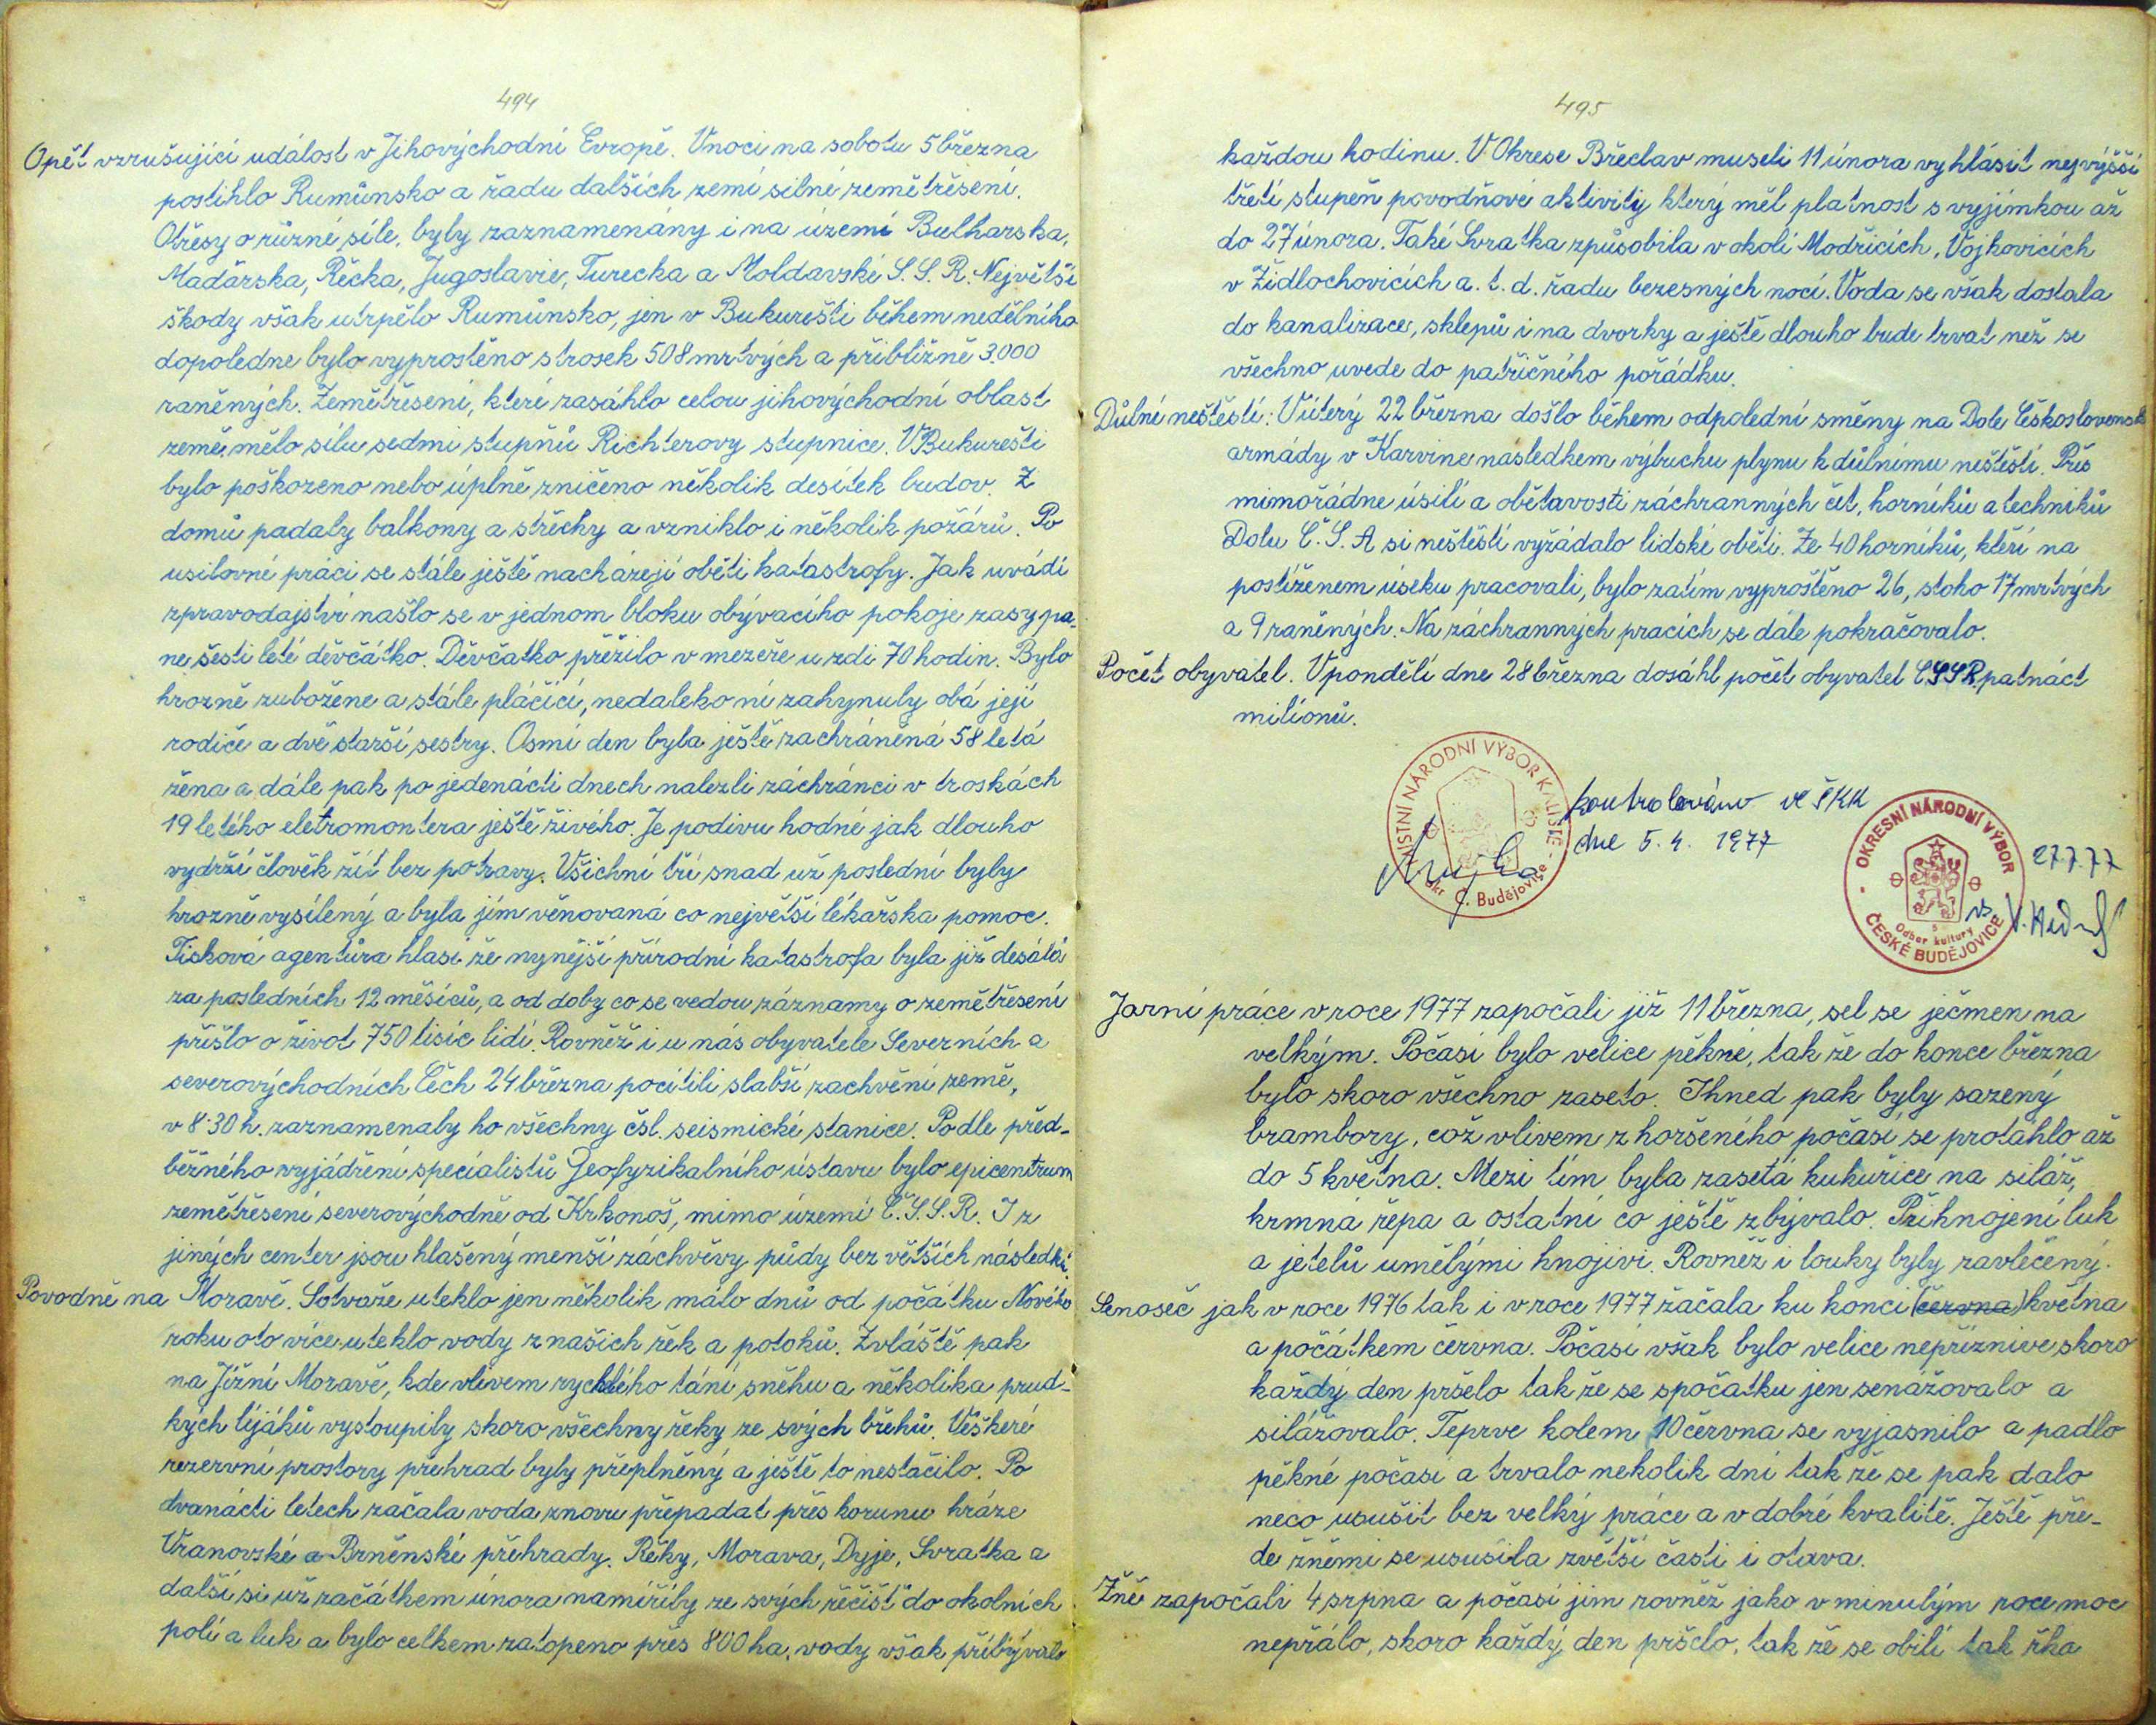 494
Opět vzrušující událost v Jihovýchodní Evropě. Vnoci na sobotu 5 března
postihlo Rumůnsko a řadu dalších zemí silné zemětřesení.
Otřesy o různé síle, byly zaznamenány i na území Bulharska,
Maďarska, Řecka, Jugoslavie, Turecka a Moldavské S.S.R. Největší
škody však utrpělo Rumůnsko, jen v Bukurešti během nedělního
dopoledne bylo vyprostěno strosek 508 mrtvých a přibližně 3.000
raněných. Zemětřesení, které zasáhlo celou jihovýchodní oblast
země, mělo sílu sedmi stupňů Richterovy stupnice. VBukurešti
bylo poškozeno nebo úplně zničeno několik desítek budov. Z
domů padaly balkony a střechy a vzniklo i několik požárů. Po
usilovné práci se stále ještě nacházejí oběti katastrofy. Jak uvádí
zpravodajství našlo se v jednom bloku obývacího pokoje zasypa-
ne šesti leté děvčátko. Děvčatko přežilo v mezeře u zdi 70 hodin. Bylo
hrozně zubožene a stále pláčící, nedaleko ní zahynuly obá její
rodiče a dvě starší sestry. Osmí den byla ještě zachráněná 58 letá
žena a dále pak po jedenácti dnech nalezli záchránci v troskách
19 letého eletromontera ještě živého. Je podivu hodné jak dlouho
vydrží člověk žít bez potravy. Všichni tři snad už poslední byly
hrozně vysílený a byla jím věnovaná co největší lékařska pomoc.
Tisková agentůra hlasí že nynější přírodní katastrofa byla již desátá
za posledních 12 měsíců, a od doby co se vedou záznamy o zemětřesení
přišlo o život 750 tisíc lidí. Rovněž i u nás obyvatele Severních a
severovýchodních Čech 24 března pocítili slabší zachvění země,
v 8.30 h. zaznamenaly ho všechny čsl. seismické stanice. Podle před-
běžného vyjádření specialistů Geofyzikalního ústavu bylo epicentrum
zemětřesení severovýchodně od Krkonoš, mimo území Č.S.S.R. I z
jiných center jsou hlašený menší záchvěvy půdy bez větších následků.
Povodně na Moravě. Sotvaže uteklo jen několik málo dnů od počátku Nového
roku oto více uteklo vody z našich řek a potoků. Zvláště pak
na Jižní Moravě, kde vlivem rychlého tání sněhu a několika prud-
kých lijáků vystoupily skoro všechny řeky ze svých břehů. Veškeré
rezervní prostory přehrad byly přeplněný a ještě to nestačilo. Po
dvanácti letech začala voda znovu přepadat přes korunu hráze
Vranovské a Brněnské přehrady. Řeky, Morava, Dyje, Svratka a
další si už začátkem února namířily ze svých řečišť do okolních
polí a luk a bylo celkem zatopeno přes 800 ha, vody však přibývalo
495
každou hodinu. V Okrese Břeclav museli 11 února vyhlásit nejvýšší
třetí stupeň povodňové aktivity který měl platnost s vyjímkou až
do 27 února. Také Svratka způsobila v okolí Modřicích, Vojkovicích
v Židlochovicích a. t. d. řadu bezesných nocí. Voda se však dostala
do kanalizace, sklepů i na dvorky a ještě dlouho bude trvat než se
všechno uvede do patřičného pořádku.
Důlní neštěstí: Vúterý 22 března došlo během odpolední směny na Dole Československ
armády v Karvine následkem výbuchu plynu k důlnímu neštěstí. Přes
mimořádne úsilí a obětavosti záchranných čet, horníků a techniků
Dolu Č.S.A si neštěstí vyžádalo lidské oběti. Ze 40 horníků, kteří na
postiženem úseku pracovali, bylo zatím vyproštěno 26, stoho 17 mrtvých
a 9 raněných. Na záchranných pracích se dále pokračovalo.
Počet obyvatel. Vpondělí dne 28 března dosáhl počet obyvatel ČSSR patnáct
milionů.
MÍSTNÍ NÁRODNÍ VÝBOR KALIŠTĚ - okr Č. Budějovice
kontrolováno ve ŠKK
dne 5. 4. 1977
- OKRESNÍ NÁRODNÍ VÝBOR ČESKÉ BUDĚJOVICE
Odbor kultury
5
27.7.77
Jarní práce v roce 1977 započali již 11 března, sel se ječmen na
velkým. Počasí bylo velice pěkné, tak že do konce března
bylo skoro všechno zaseto. Ihned pak byly sazený
brambory, což vlivem zhoršeného počasí se protáhlo až
do 5 května. Mezi tím byla zasetá kukuřice na siláž,
krmná řepa a ostatní co ještě zbývalo. Přihnojení luk
a jetelů umělými hnojivi. Rovněž i louky byly zavlečený.
Senoseč jak v roce 1976 tak i v roce 1977 začala ku konci (června) května
a počátkem června. Počasí však bylo velice nepříznive skoro
každý den pršelo tak že se spočatku jen senážovalo a
silážovalo. Teprve kolem 10 června se vyjasnilo a padlo
pěkné počasí a trvalo nekolik dní tak že se pak dalo
neco ususit bez velký práce a v dobré kvalitě. Ještě pře-
de žněmi se ususila zvětší časti i otava.
Žně započali 4 srpna a počasí jim rovněž jako v minulým roce moc
nepřálo, skoro každý den pršelo, tak že se obilí tak řka